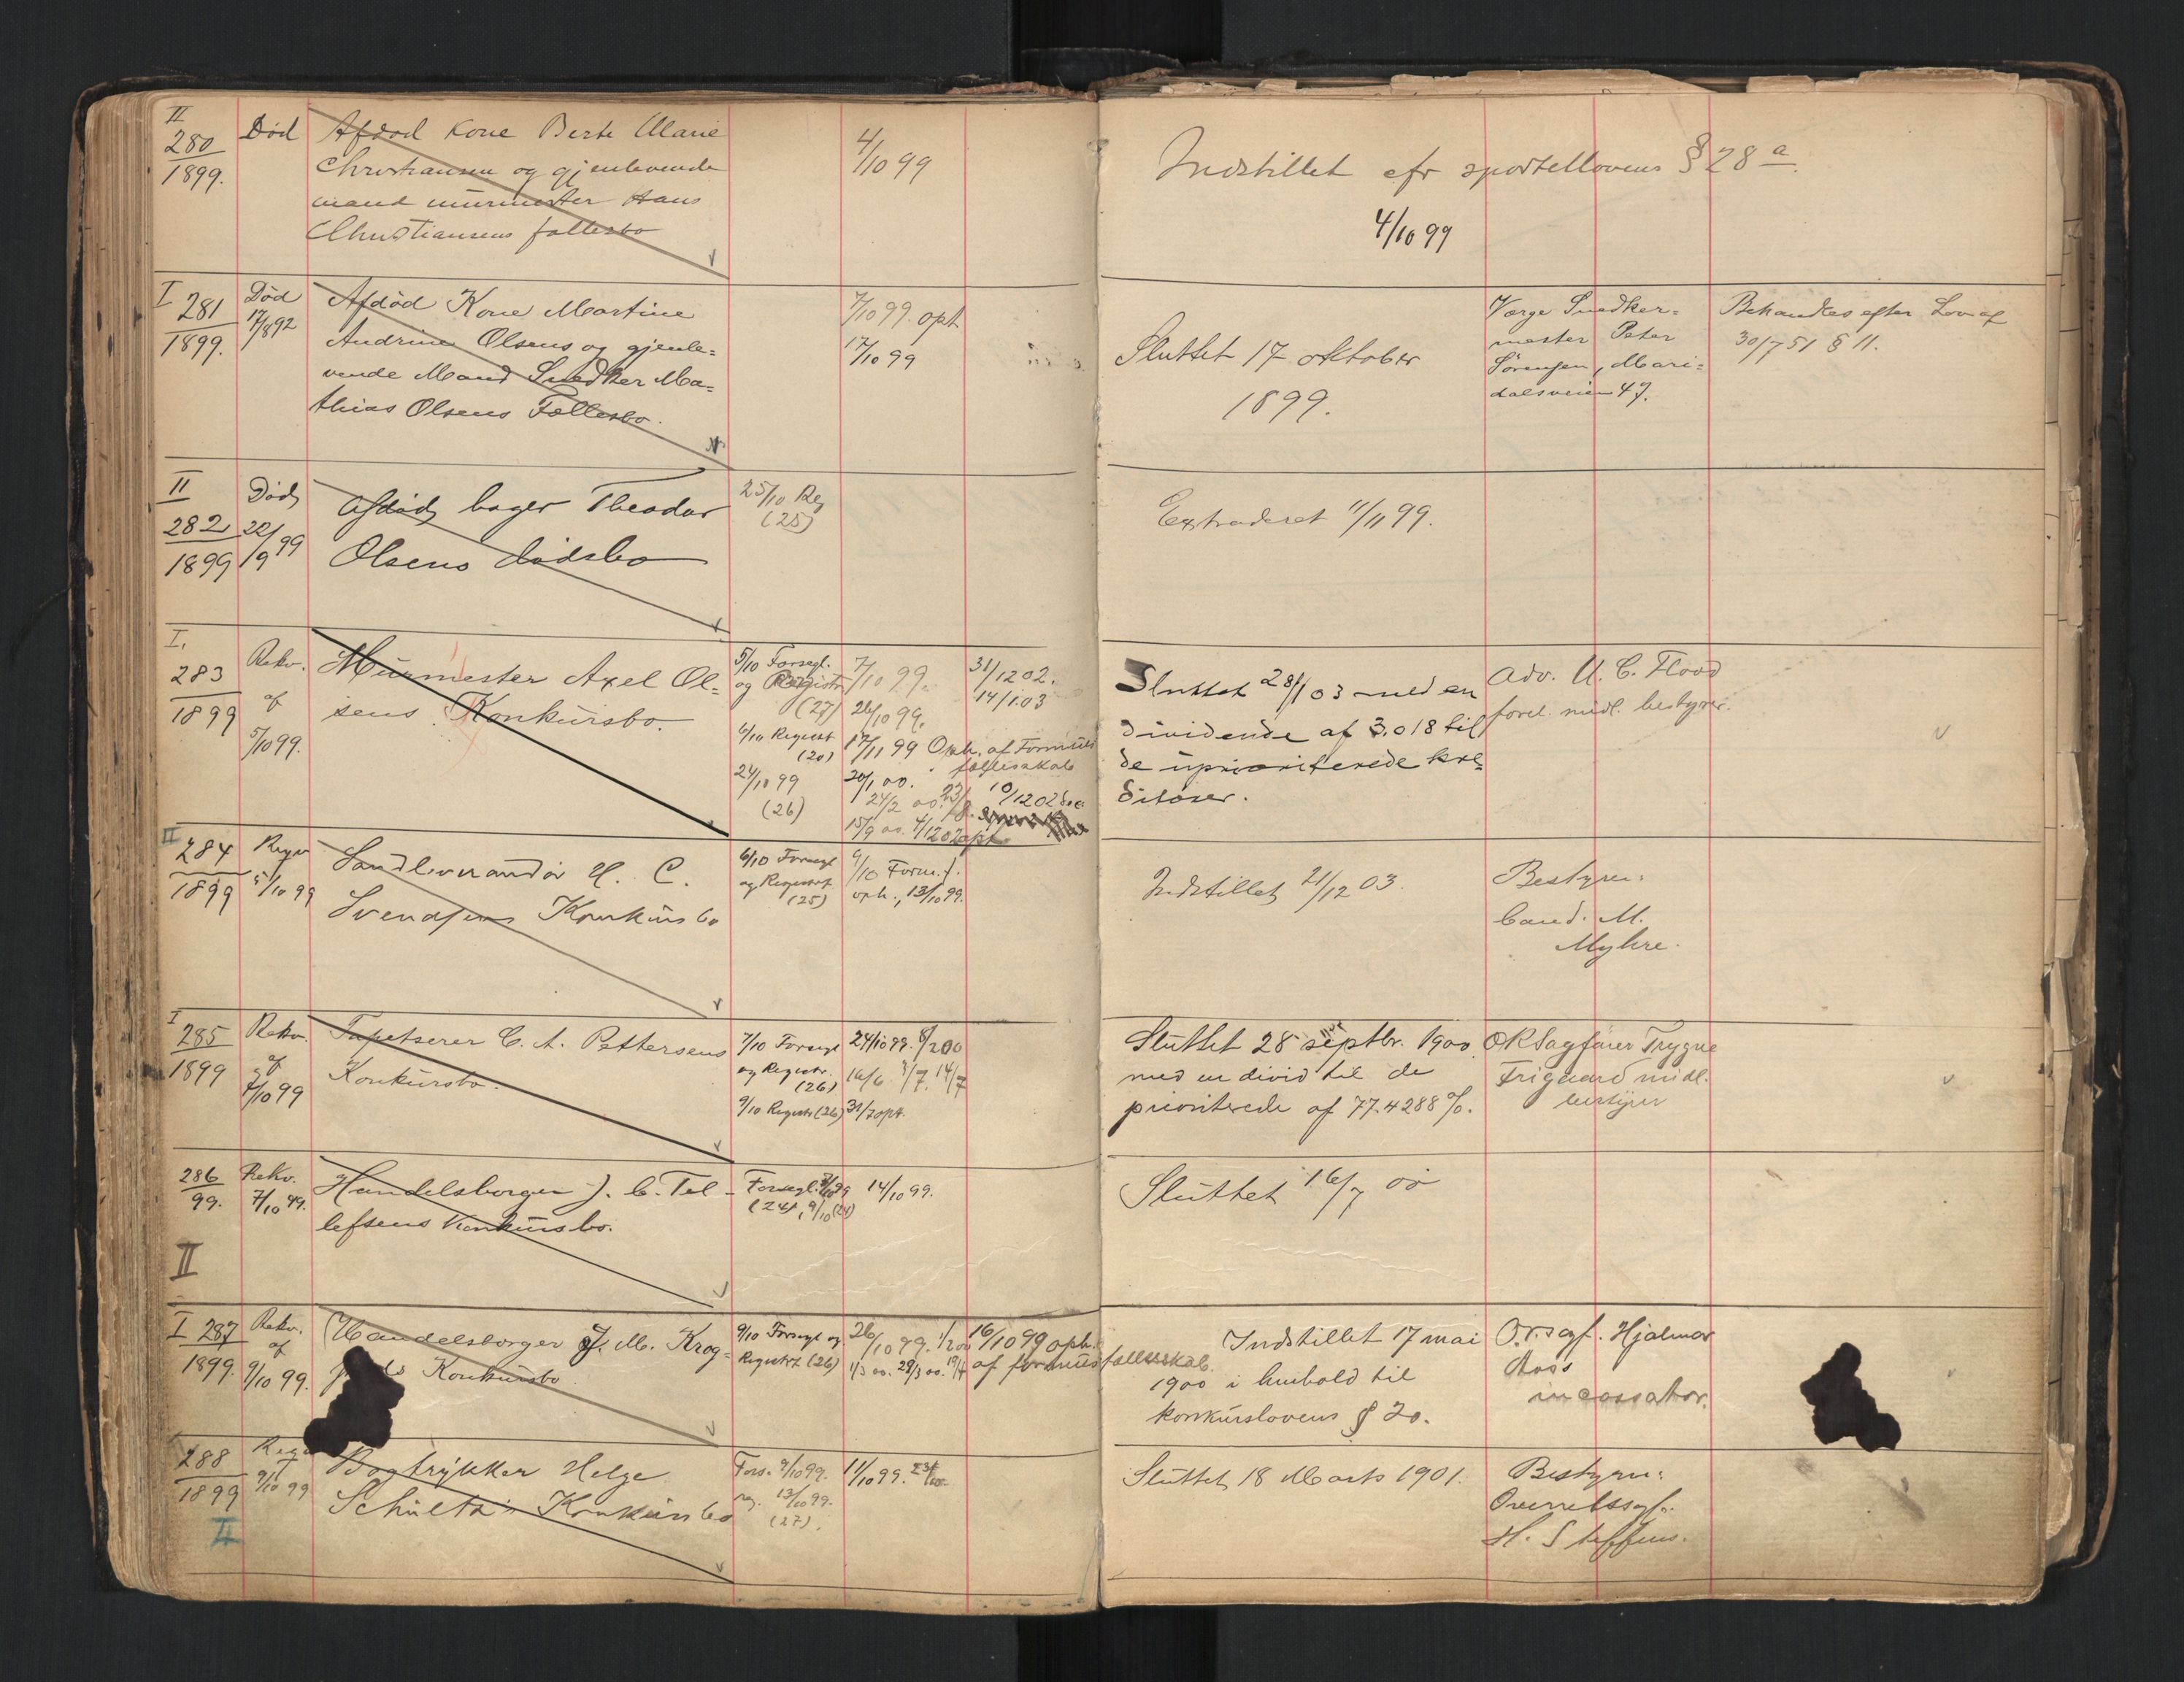 II
280
1899.
Død
Afdød Kone Berte Marie
Christiansen og gjenlevende
mand murmester Hans
Christiansens fællesbo
4/10 99
Indstillet efr sportellovens § 28 a.
4/10 99
I 281
1899.
Død
17/8 92
Afdød Kone Martine
Andrine Olsens og gjenle=
vende Mand Snedker Ma=
thias Olsens Fællesbo.
7/10 99. opt
17/10 99
Sluttet 17 oktober
1899.
Værge Snedker=
mester Peter
Sørensen, Mari=
dalsveien 47.
Behandles efter Lov af
30/7 51 § 11.
II
282
1899
Død
22/9 99
Afdød bager Theodor
Olsens dødsbo
25/10 Reg
(25)
Extraderet 11/11 99.
I.
283
1899
Rekv.
af
5/10 99.
Murmester Axel Ol=
sens Konkursbo.
5/10 Forsegl.
og Registr
(27)
6/10 Registr
(20)
24/10 99
(26)
7/10 99.
26/10 99.
17/11 99 Oph. af Formues
fællesskab
20/1 00.
24/2 00.
10/12 02
15/9 00. 4/12 02 opt
31/12 02.
14/1.03
Sluttet 28/1 03 med en
dividende af 3.018 til
de uprioriterede kre=
ditorer.
Adv. U. C. Flood
forel. midl. bestyrer.
II
284
1899
5/10 99
Sandleverandør H. C.
Svendsens Konkursbo
6/10 Forsegl
og Registr.
(25)
9/10 Form.f.
oph., 13/10 99.
Indstillet 21/12 03.
Bestyrer:
Cand. M.
Myhre.
I
285
1899
Rekv.
af
7/10 99
Tapetserer C. A. Pettersens
Konkursbo.
7/10 Forsegl
og Registr.
(26)
9/10 Registr (26)
24/10 99. 8/2 00
16/6. 3/7. 14/7
31/7 opt.
Sluttet 28 septbr. 1900
med en divid til de
prioriterede af 77.4288 %.
O R Sagfører Trygve
Frigaard midl.
bestyrer
286
99.
II
Rekv.
7/10 99.
Handelsborger J. C. Tel-
lefsens Konkursbo.
Forsegl. 7/10 99
(24), 9/10 (24)
14/10 99.
Sluttet 16/7 00
I 287
1899.
Rekv.
af
9/10 99.
Handelsborger J. M. Krog-
Konkursbo
9/10 Forsegl og
Registr. (26)
26/10 99. 1/2 00
1/3 00. 28/3 00. 19/4
16/10 99 oph.
af formuesfællesskab.
Indstillet 17 mai
1900 i henhold til
konkurslovens § 20.
O.r.sagf. Hjalmar
Aass
incassator.
288
1899
II
9/10 99
Bogtrykker Helge
Schultz's Konkursbo
Fors. 9/10 99.
reg. 13/10 99.
(27).
11/10 99.
Sluttet 18 Marts 1901.
Bestyrer:
Overretssagf.
H. Steffens.